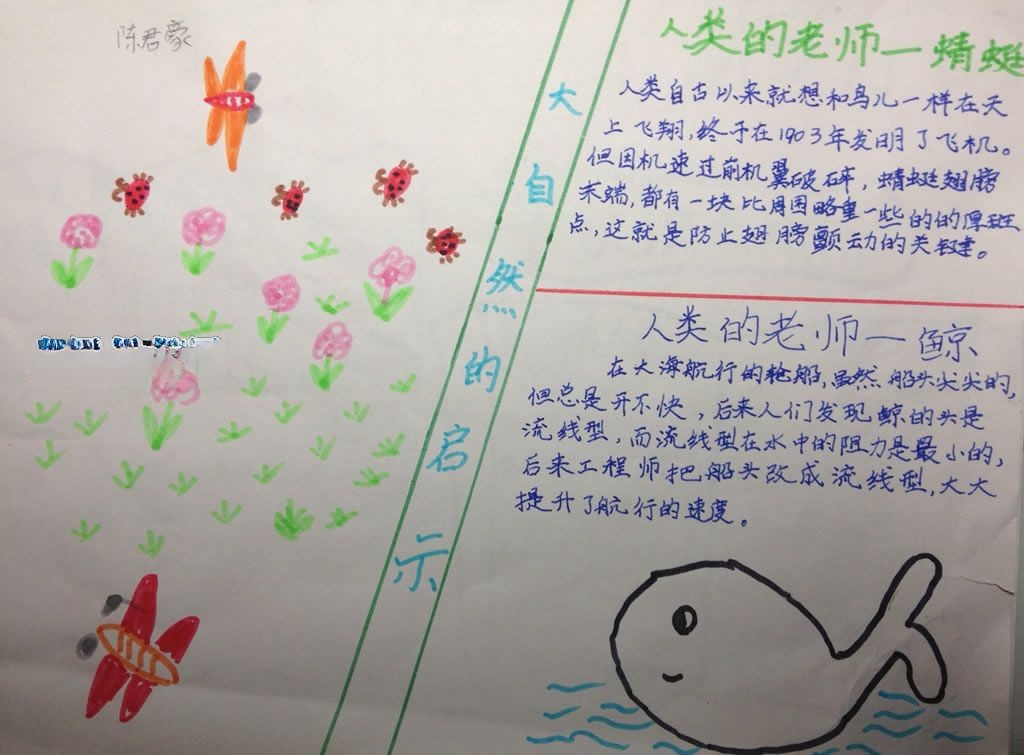 陈君豪
大自然的启示
人类的老师—蜻蜓
人类自古以来就想和鸟儿一样在天
上飞翔,终于在1903年发明了飞机。
但因机速过前机翼破碎,蜻蜓翅膀
末端,都有一块比周围略重一些的的厚斑
点,这就是防止翅膀颤动的关键。
人类的老师—鲸
在大海航行的轮船,虽然船头尖尖的,
但总是开不快,后来人们发现鲸的头是
流线型,而流线型在水中的阻力是最小的,
后来工程师把船头改成流线型,大大
提升了航行的速度。